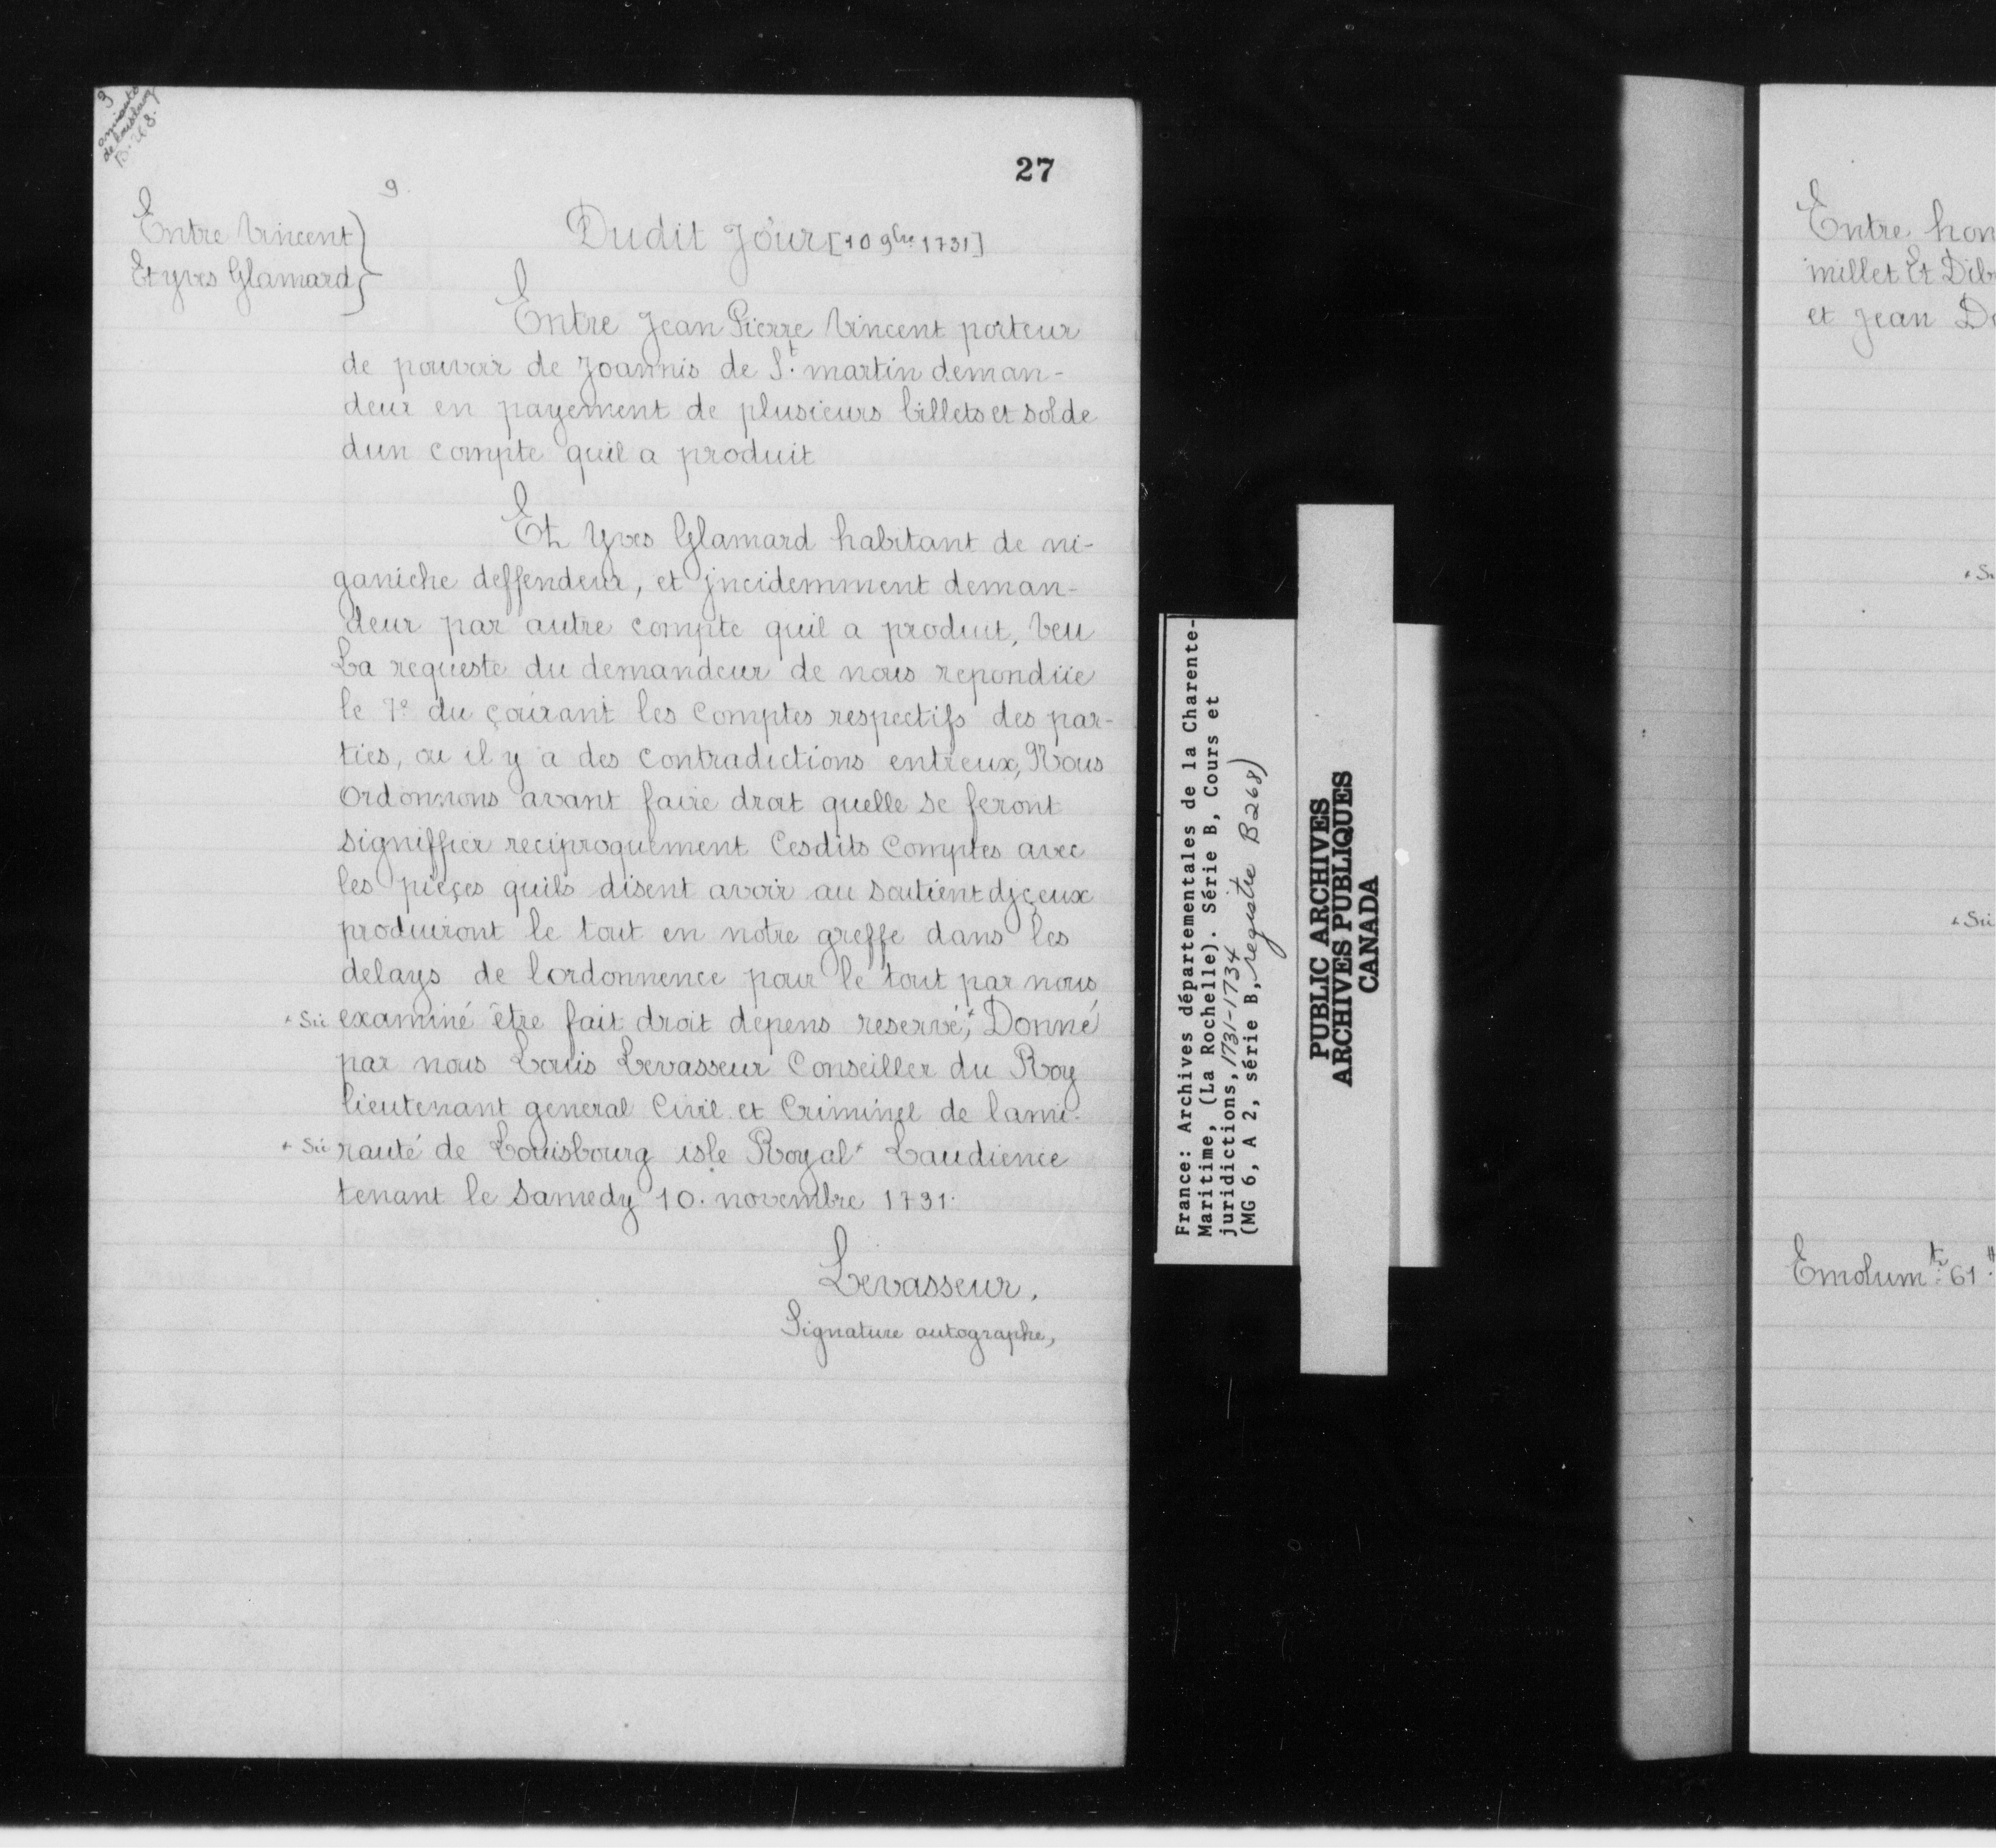 3
amirauté
de Louisbourg
B. 268.
27
9.
Entre Vincent
Et yves Glamard
Dudit Jour [10 9bre 1731]
Entre Jean Pierre Vincent porteur
de pouvoir de Joannis de St. martin deman-
deur en payement de plusieurs billets et solde
dun compte quil a produit
Et Yves Glamard habitant de ni-
ganiche deffendeur, et jncidemment deman-
deur par autre compte quil a produit, Veu
La requeste du demandeur de nous repondüe
le 7e du courant les Comptes respectifs des par-
ties, ou il y a des Contradictions entreux, Nous
Ordonnons avant faire droit quelle se feront
signiffier reciproquement Cesdits Comptes avec
les pieçes quils disent avoir au soutient djçeux
produiront le tout en notre greffe dans les
delays de lordonnence pour le tout par nous
+ Sic examiné être fait droit depens reservé;+ Donné
par nous Louis Levasseur Conseiller du Roy
lieutenant general Civil et Criminel de lami-
+ Sic rauté de Louisbourg isle Royal+ Laudience
tenant le Samedy 10. novembre 1731.
Levasseur.
Signature autographe,
France: Archives départementales de la Charente-
Maritime, (La Rochelle). Série B, Cours et
juridictions, 1731-1734
(MG 6, A 2, série B, registre B268)
PUBLIC ARCHIVES
ARCHIVES PUBLIQUES
CANADA
Entre hon
millet Et Dib
et Jean D
+ Si
+ Sic
Emolumts. 61